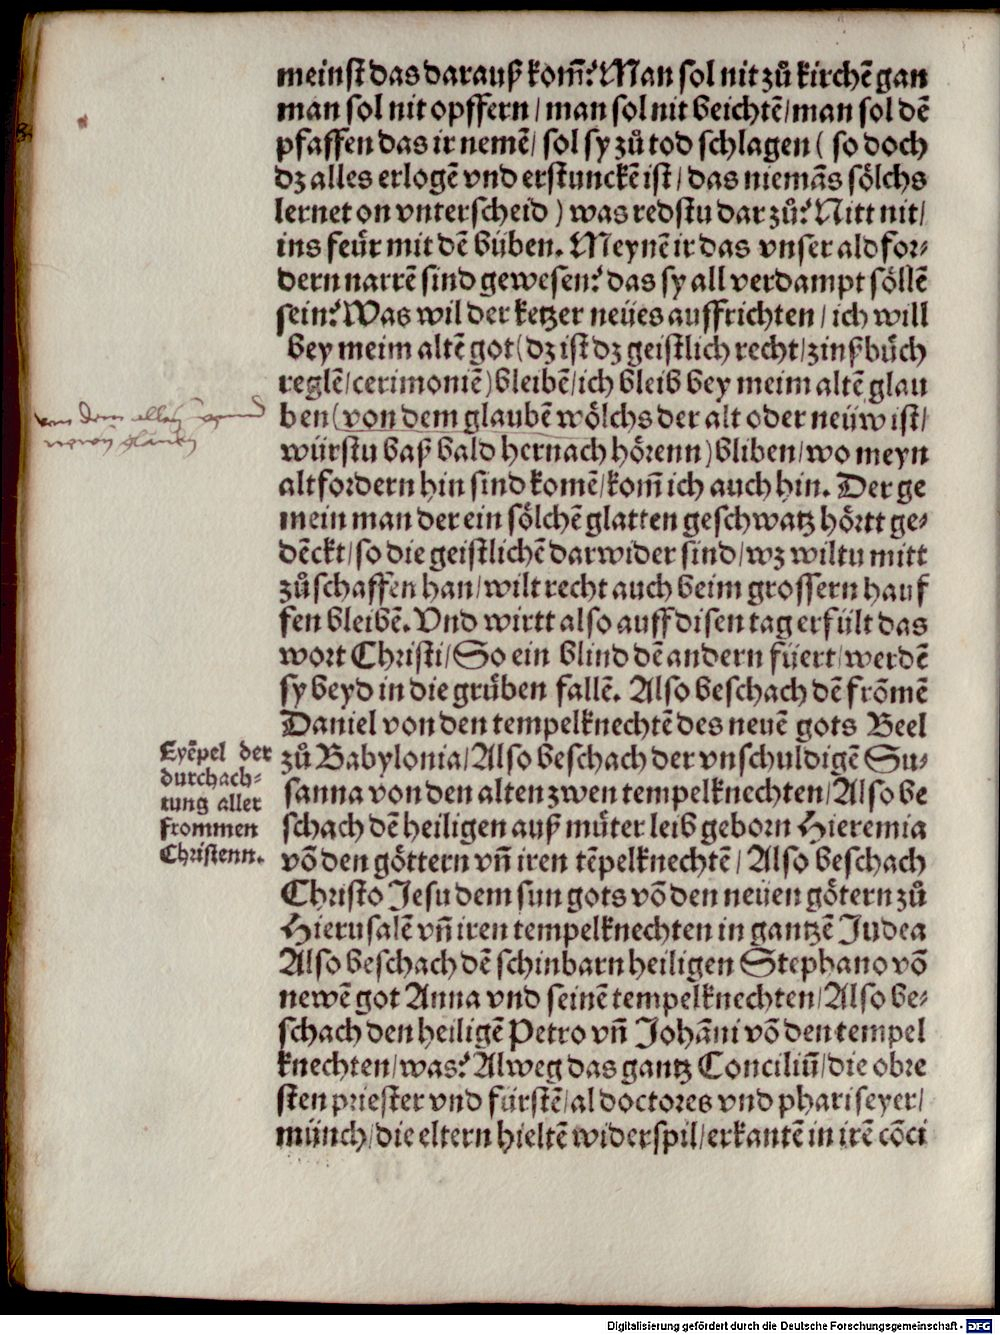 meinst das darauß kom̃? Man sol nit zů kirchẽ gan
man sol nit opffern / man sol nit beichtẽ / man sol dẽ
pfaffen das ir nemẽ / sol sy zů tod schlagen ( so doch
dz alles erlogẽ vnd erstunckẽ ist / das niemãs sölchs
lernet on vnterscheid ) was redstu dar zů? Nitt nit /
ins feür mit dẽ bůben. Meynẽ ir das vnser aldfor⸗
dern narrẽ sind gewesen? das sy all verdampt söllẽ
sein? Was wil der ketzer neües auffrichten / ich will
bey meim altẽ got ( dz ist dz geistlich recht / zinßbůch
reglẽ / cerimoniẽ ) bleibẽ / ich bleib bey meim altẽ glau
ben ( von dem glaubẽ wölchs der alt oder neüw ist /
würstu baß bald hernach hörenn ) bliben / wo meyn
altfordern hin sind komẽ / kom̃ ich auch hin. Der ge
mein man der ein sölchẽ glatten geschwatz hörtt ge⸗
dẽckt / so die geistlichẽ darwider sind / wz wiltu mitt
zůschaffen han / wilt recht auch beim grossern hauf
fen bleibẽ. Vnd wirtt also auff disen tag erfült das
wort Christi / So ein blind dẽ andern füert / werdẽ
sy beyd in die grůben fallẽ. Also beschach dẽ frõmẽ
Daniel von den tempelknechtẽ des neuẽ gots Beel
zů Babylonia / Also beschach der vnschuldigẽ Su⸗
sanna von den alten zwen tempelknechten / Also be
schach dẽ heiligen auß můter leib geborn Hieremia
võ den göttern vñ iren tẽpelknechtẽ / Also beschach
Christo Jesu dem sun gots võ den neüen götern zů
Hierusalẽ vñ iren tempelknechten in gantzẽ Judea
Also beschach dẽ schinbarn heiligen Stephano võ
newẽ got Anna vnd seinẽ tempelknechten / Also be⸗
schach den heiligẽ Petro vñ Johãni võ den tempel
knechten / was? Alweg das gantz Conciliũ / die obre
sten priester vnd fürstẽ / al doctores vnd phariseyer /
münch / die eltern hieltẽ widerspil / erkantẽ in irẽ cõci
von dem alten vnnd
newen glauben
Exẽpel der
durchach⸗
tung aller
frommen
Christenn.
Digitalisierung gefördert durch die Deutsche Forschungsgemeinschaft - DFG